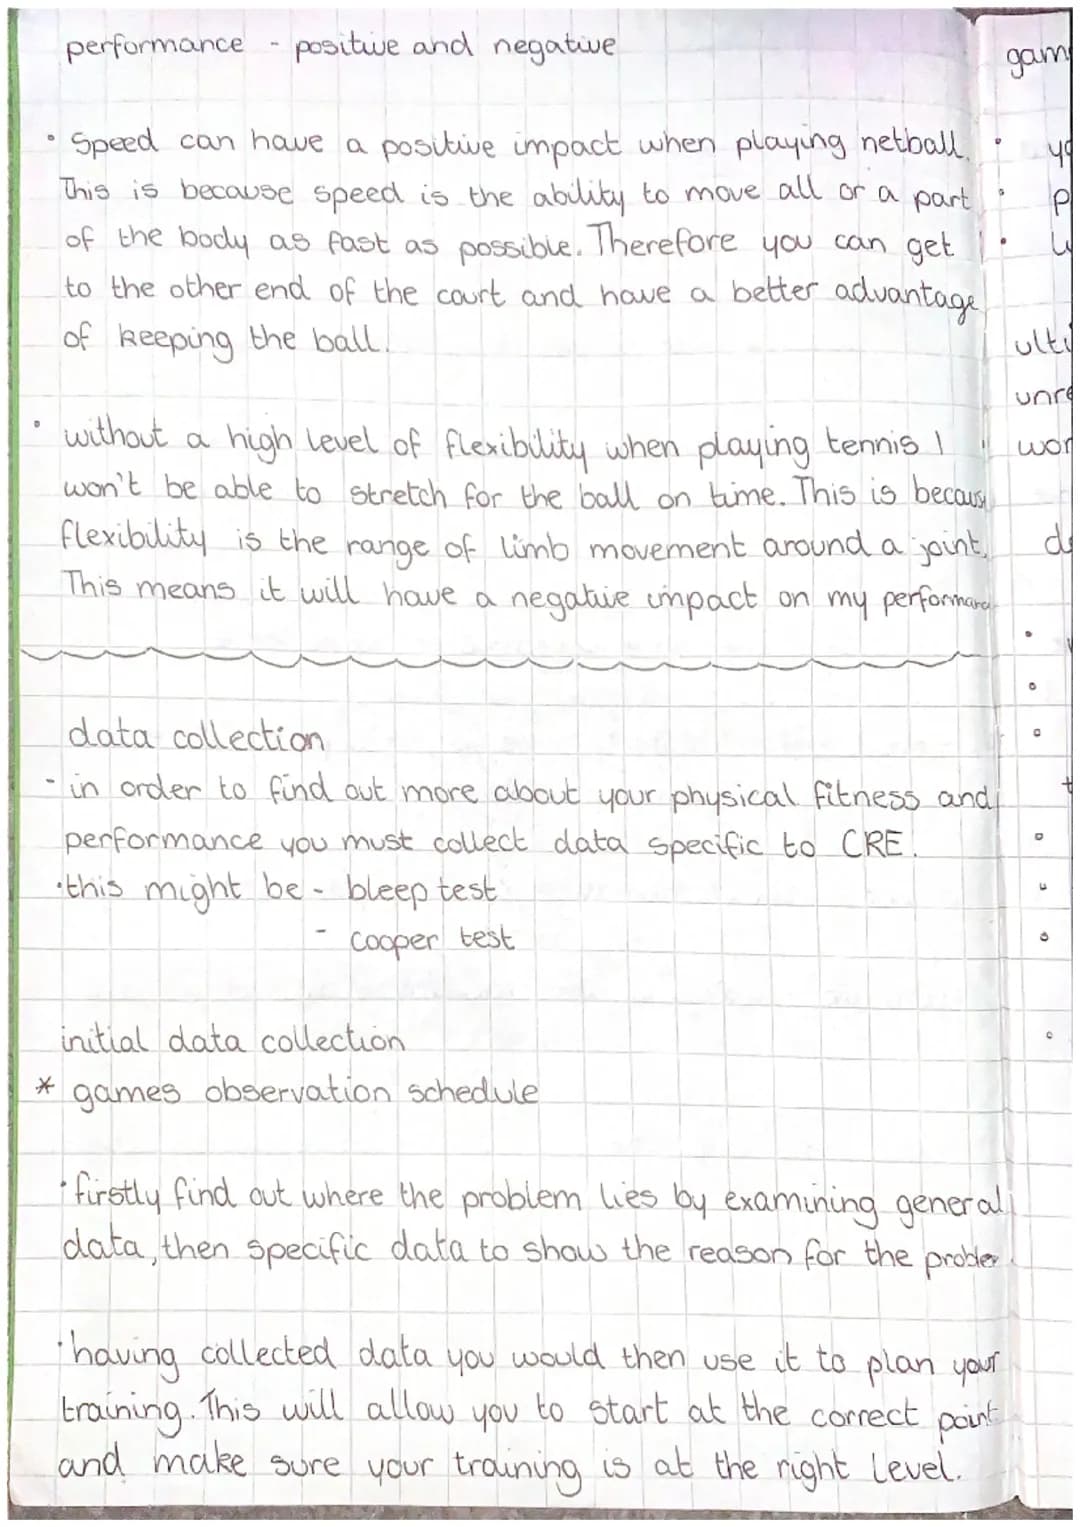 performance - positive and negative
• Speed can have a positive impact when playing netball.
This is because speed is the ability to move all or a part
of the body as fast as possible. Therefore you can get
to the other end of the court and have a better advantage
of keeping the ball.
• without a high level of flexibility when playing tennis I
won't be able to stretch for the ball on time. This is becaus
flexibility is the range of limb movement around a joint.
This means it will have a negative impact on my performanc
data collection
- in order to find out more about your physical fitness and
performance you must collect data specific to CRE.
• this might be - bleep test
- cooper test
initial data collection
* games observation schedule
• firstly find out where the problem lies by examining general
data, then specific data to show the reason for the proble
• having collected data you would then use it to plan your
training. This will allow you to start at the correct point
and make sure your training is at the right level.
gam
ulti
unre
wor